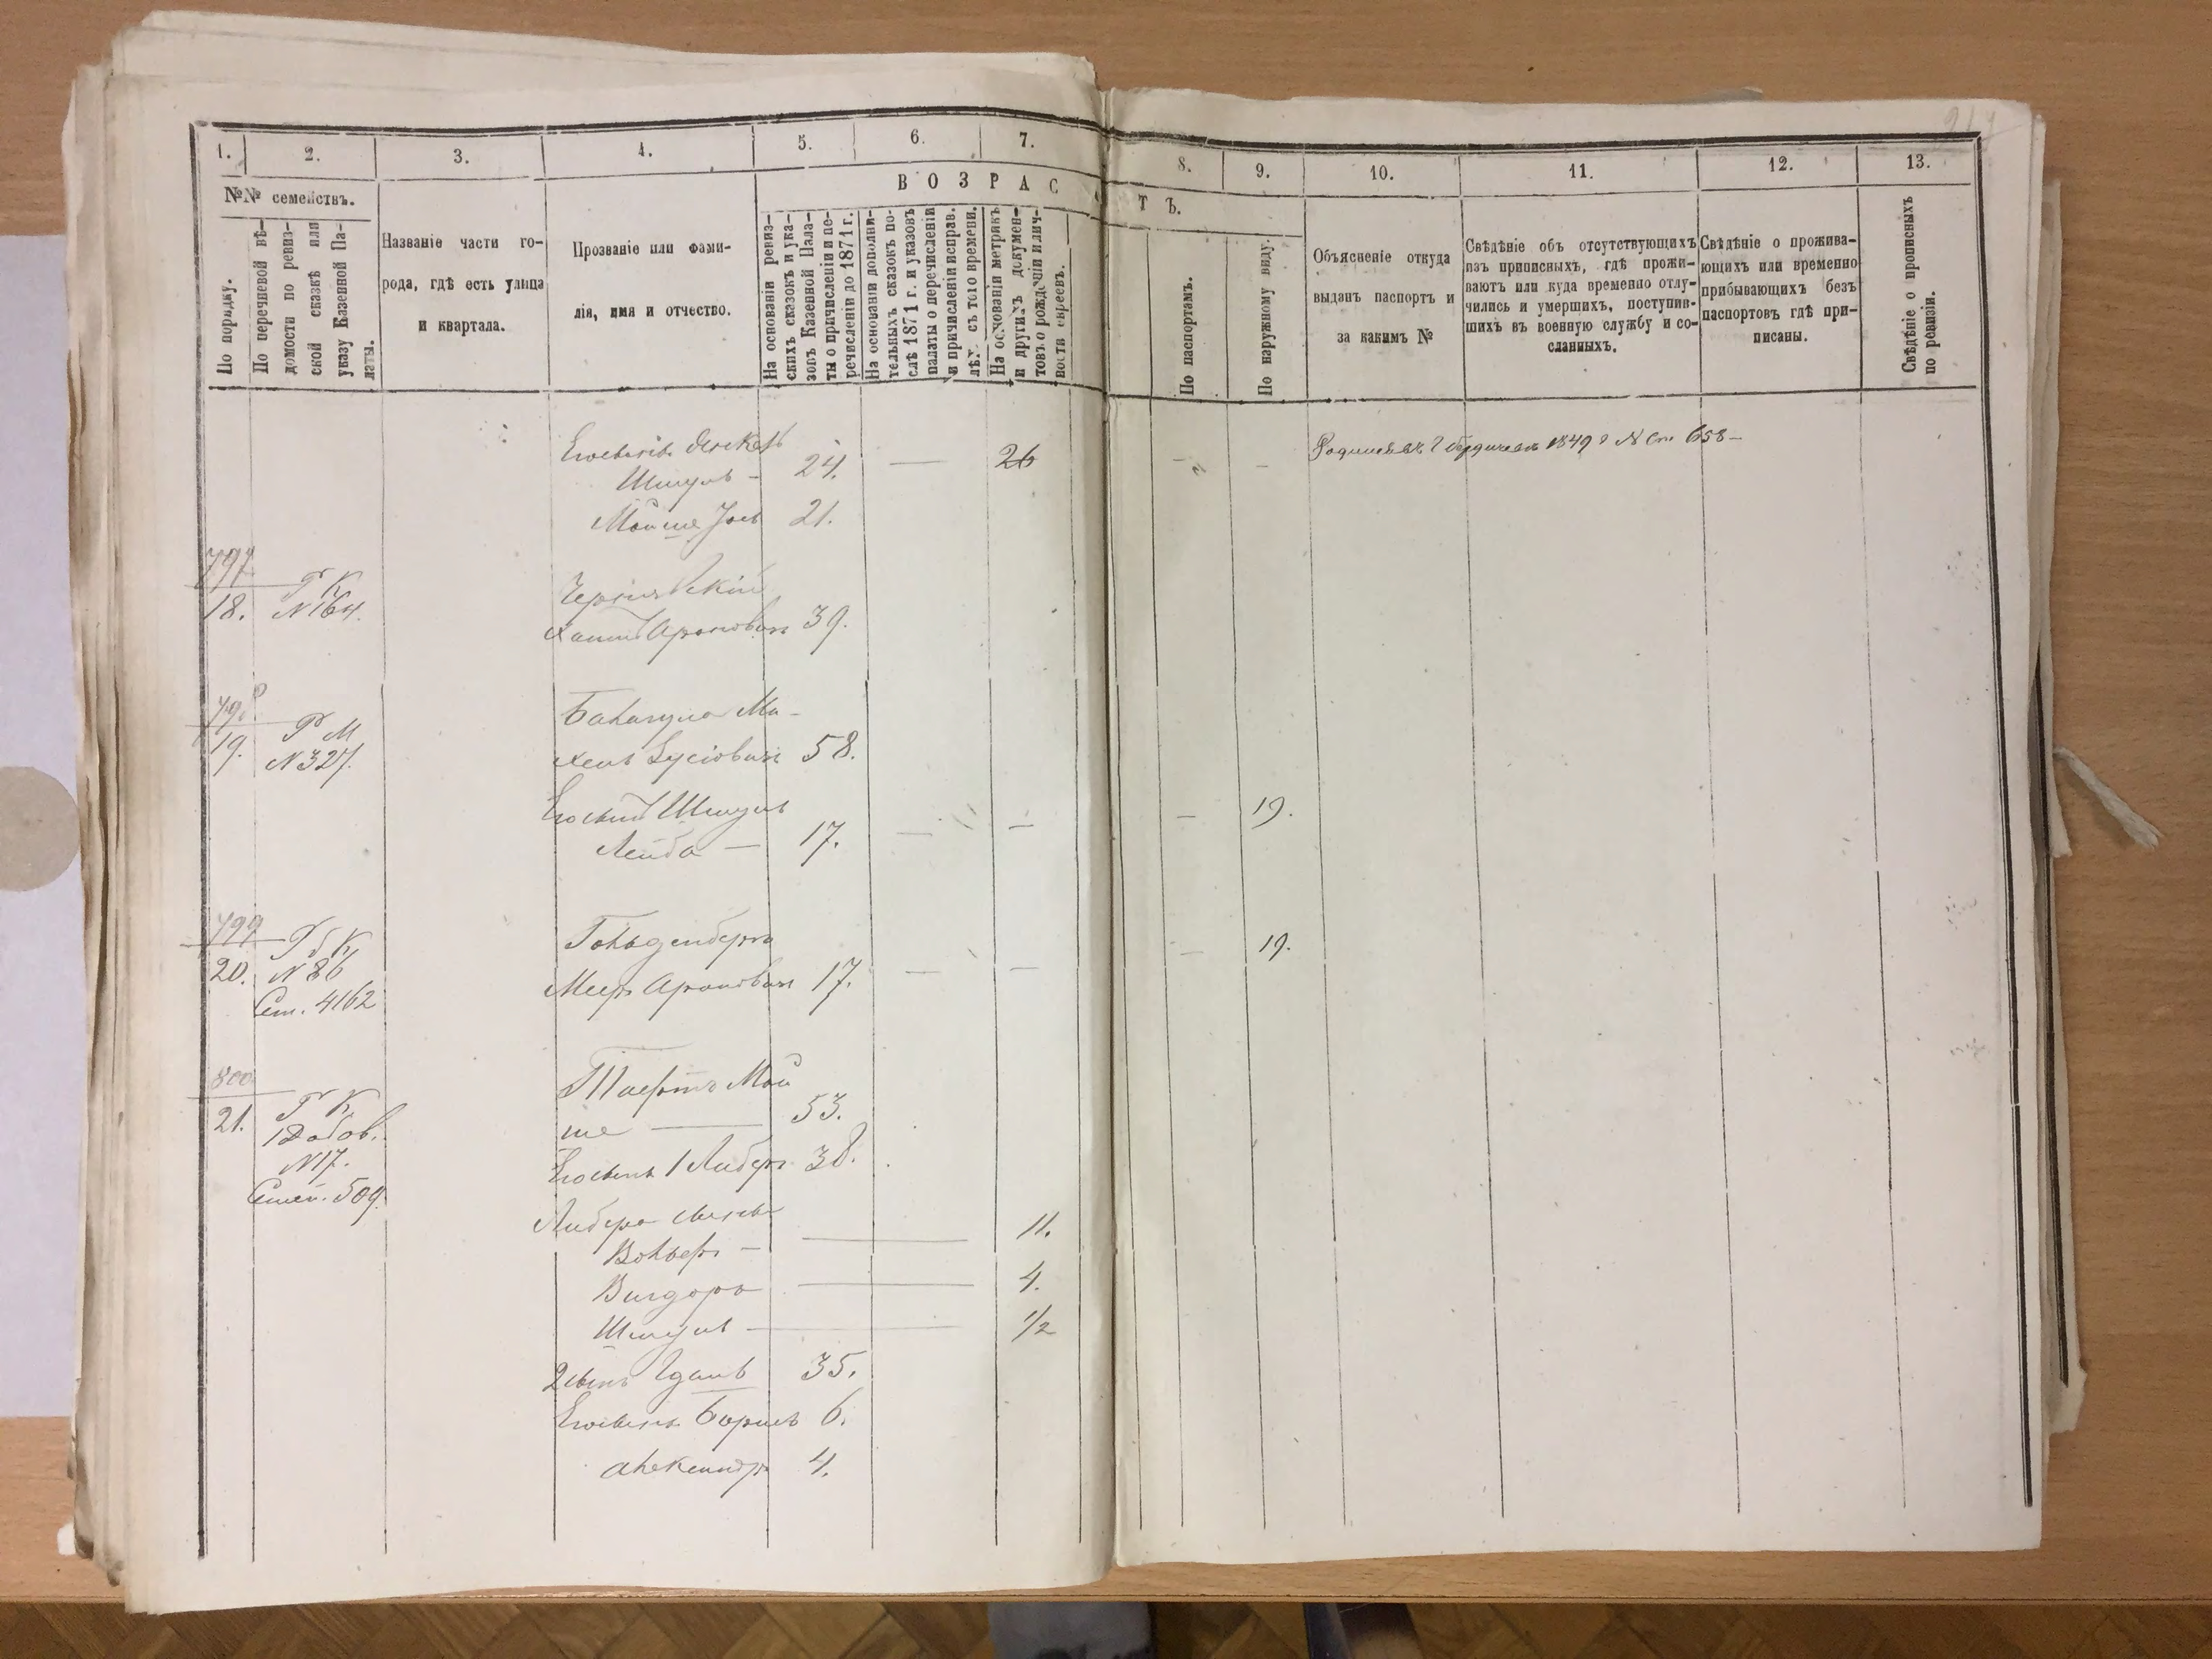 1.
2.
3.
4.
5.
6.
7.
8.
9.
10.
11.
12.
13.
№№ семействъ.
По порядку.
По перечневой вѣ-
домости по ревиз-
ской сказкѣ или
указу Казенной Па-
латы.
Названіе части го-
рода, гдѣ есть улица
и квартала.
Прозваніе или фами-
лія, имя и отчество.
ВОЗРАС
ТЪ.
На основаніи ревиз-
скихъ сказокъ и ука-
зовъ Казенной Пала-
ты о причисленіи и пе-
речисленіи до 1871 г.
На основаніи дополни-
тельныхъ сказокъ по-
слѣ 1871 г. и указовъ
палаты о перечисленіи
и причисленіи исправ.
съ того времени.
На основаніи метрикъ
и другихъ докумен-
товъ о рожденіи и лич-
ности евреевъ.
По паспортамъ.
По наружному виду.
Объясненіе откуда
выданъ паспортъ и
за какимъ №
Свѣдѣніе объ отсутствующихъ
изъ приписныхъ, гдѣ прожи-
ваютъ или куда временно отлу-
чились и умершихъ, поступив-
шихъ въ военную службу и со-
сланныхъ.
Свѣдѣніе о прожива-
ющихъ или временно
прибывающихъ безъ
паспортовъ гдѣ при-
писаны.
Свѣдѣніе о прописныхъ
по ревизіи.
Шмуль - 24. — 26 —
1849 г № 658 —
Мойше Іось 21.
797
18. Р К
№ 164.
Чернявскій
Ароновичъ 39.
798
19. Р М
№ 327.
Ми-
хель 58.
Его сынъ Шмуль
Лейба — 17. — — — 19.
799
20. Р б К
№ 86
Сем. 4162
Гольденбергъ
Мееръ Ароновичъ 17. — — — 19.
800
21. Р К
1 Добов.
№ 17.
Семей. 509.
Мой
ше — 53.
Его сынъ 1 Либеръ 38.
Либера сынъ
Вольфъ — — 11.
Вигдоръ — 4.
Шмуль — 1/2
2 сынъ 35.
Его сынъ Борисъ 6.
Александръ 4.